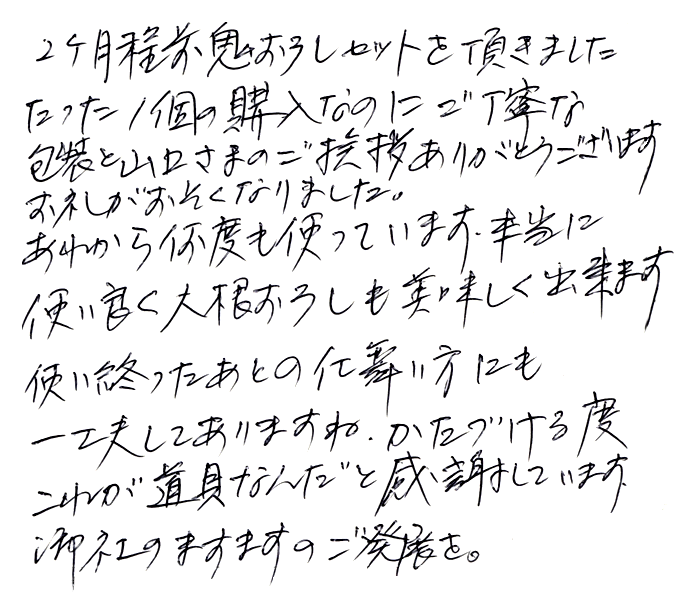 2ケ月程前鬼おろしセットを頂きました
たった1個の購入なのにご丁寧な
包装と山口さまのご挨拶ありがとうございます
お礼がおそくなりました。
あれから何度も使っています。本当に
使い良く大根おろしも美味しく出来ます
使い終ったあとの仕舞い方にも
一工夫してありますね。かたづける度
これが道具なんだと感謝しています。
御社のますますのご発展を。